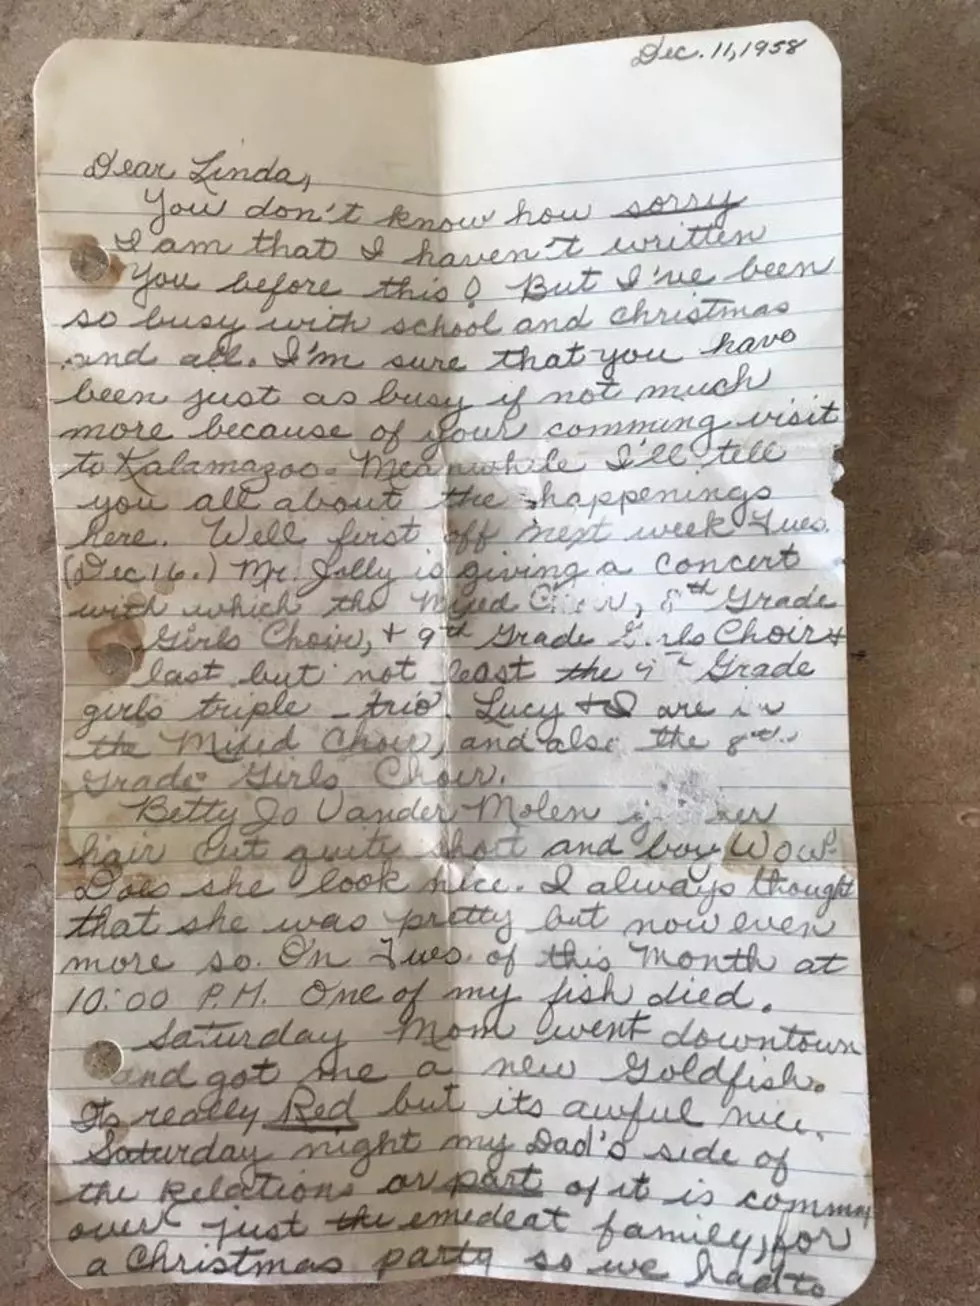 Dec. 11, 1958
Dear Linda,
You don't know how sorry
I am that I haven't written
you before this! But I've been
so busy with school and christmas
and all. I'm sure that you have
been just as busy if not much
more because of your comming visit
to Kalamazoo. Meanwhile I'll tell
you all about the happenings
here. Well first off next week Tues.
(Dec 16.) Mr. Jolly is giving a concert
with which the Mixed Choir, 8th Grade
Girls Choir, + 9th Grade Girls Choir +
last but not least the 9th Grade
girls triple - trio. Lucy + I are in
the Mixed Choir, and also the 8th
Grade Girls Choir.
Betty Jo Vander Molen her
hair cut quite short and boy Wow!
Does she look nice. I always thought
that she was pretty but now even
more so. On Tues. of this Month at
10:00 P.M. One of my fish died.
Saturday Mom went downtown
and got me a new Goldfish.
Its really Red but its awful nice.
Saturday night my Dad's side of
the Relations or part of it is comming
over just the emedeat family, for
a Christmas party so we had to